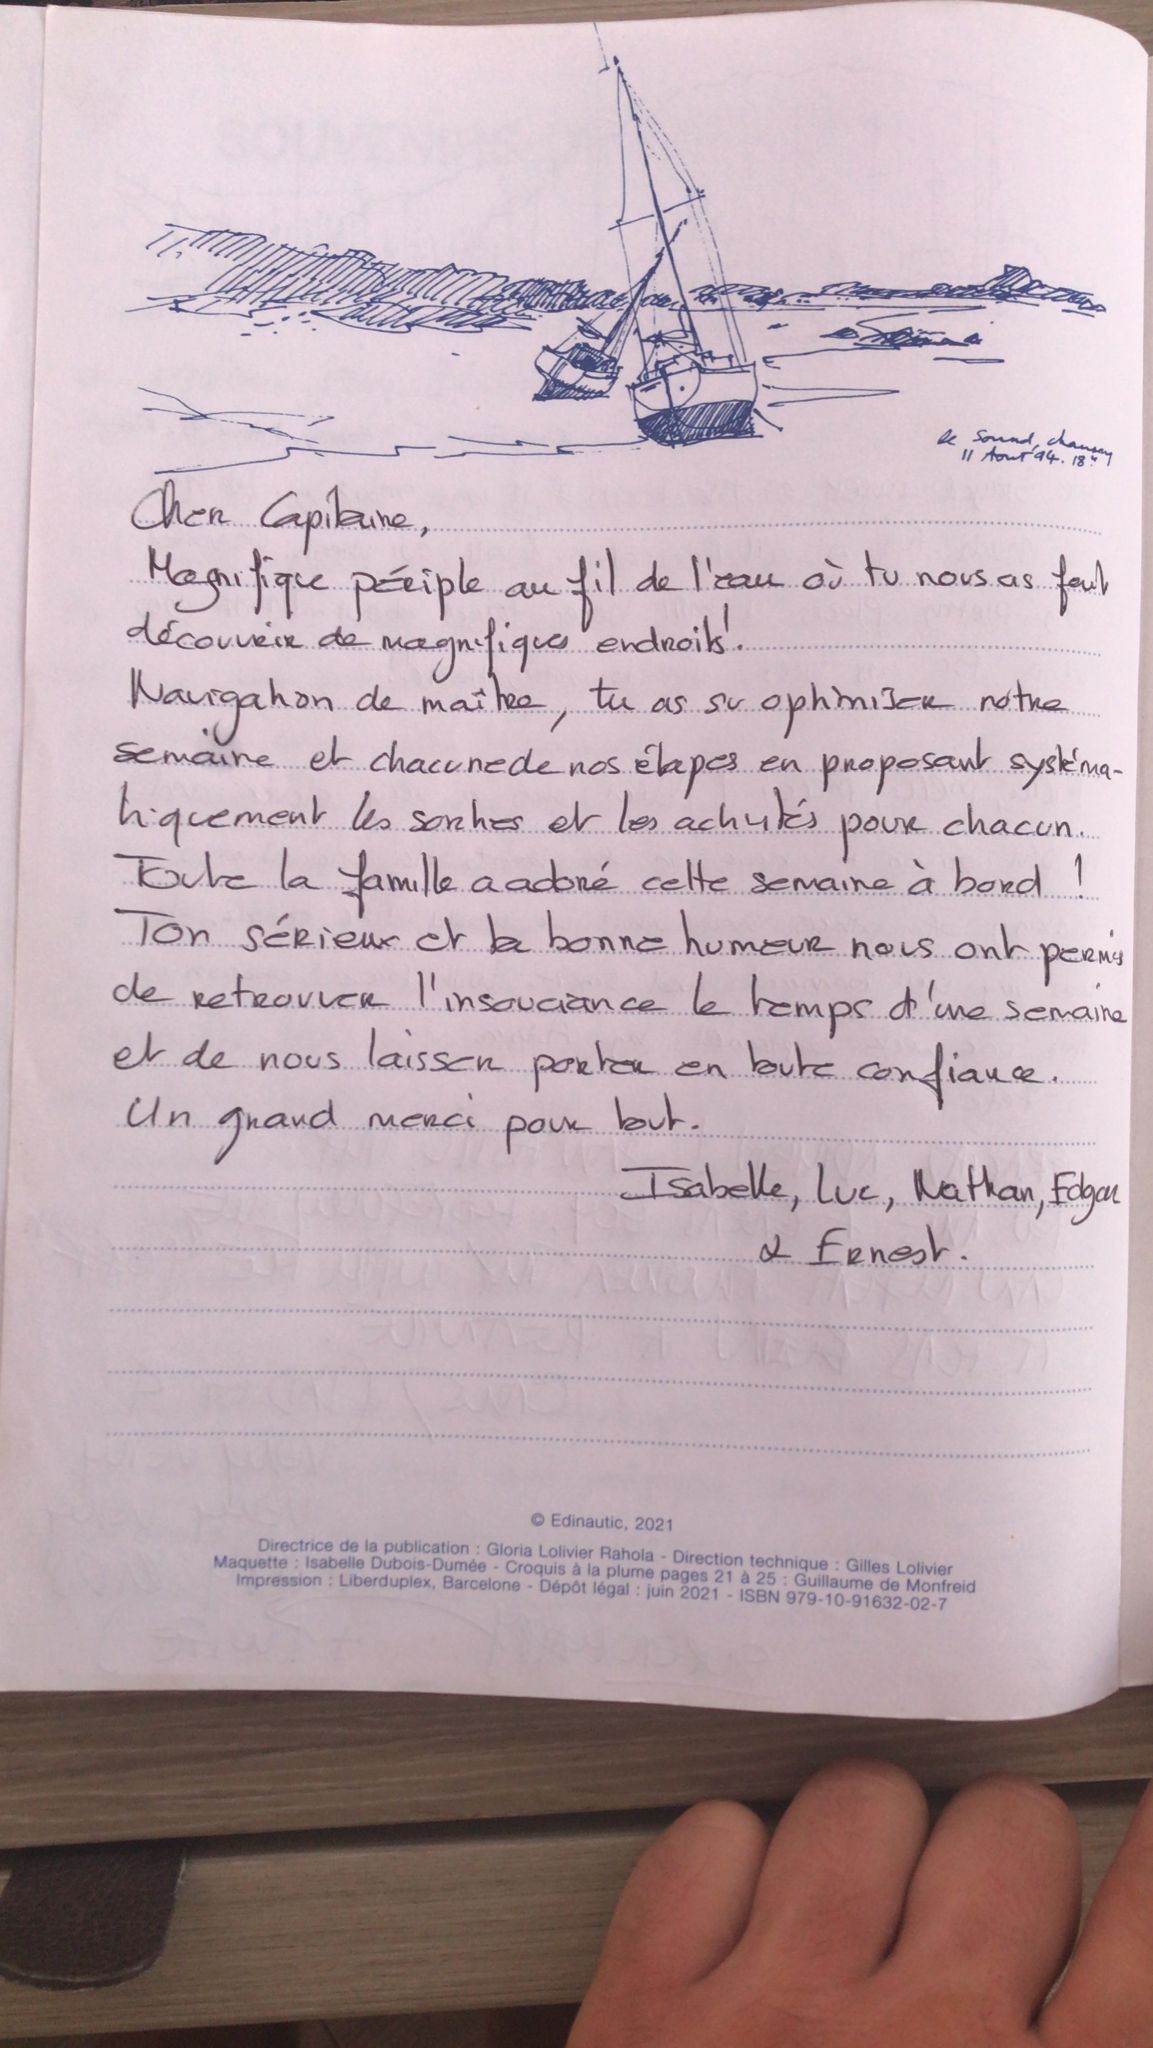 le Sound, Chausey
11 Aout 94. 18h
Cher Capitaine,
Magnifique périple au fil de l'eau où tu nous as fait
découvrir de magnifiques endroits !
Navigation de maître, tu as su optimiser notre
semaine et chacune de nos étapes en proposant systéma-
tiquement les sorties et les activités pour chacun.
Toute la famille a adoré cette semaine à bord !
Ton sérieux et ta bonne humeur nous ont permis
de retrouver l'insouciance le temps d'une semaine
et de nous laisser porter en toute confiance.
Un grand merci pour tout.
Isabelle, Luc, Nathan, Edgar
& Ernest.
© Edinautic, 2021
Directrice de la publication : Gloria Lolivier Rahola - Direction technique : Gilles Lolivier
Maquette : Isabelle Dubois-Dumée - Croquis à la plume pages 21 à 25 : Guillaume de Monfreid
Impression : Liberduplex, Barcelone - Dépôt légal : juin 2021 - ISBN 979-10-91632-02-7